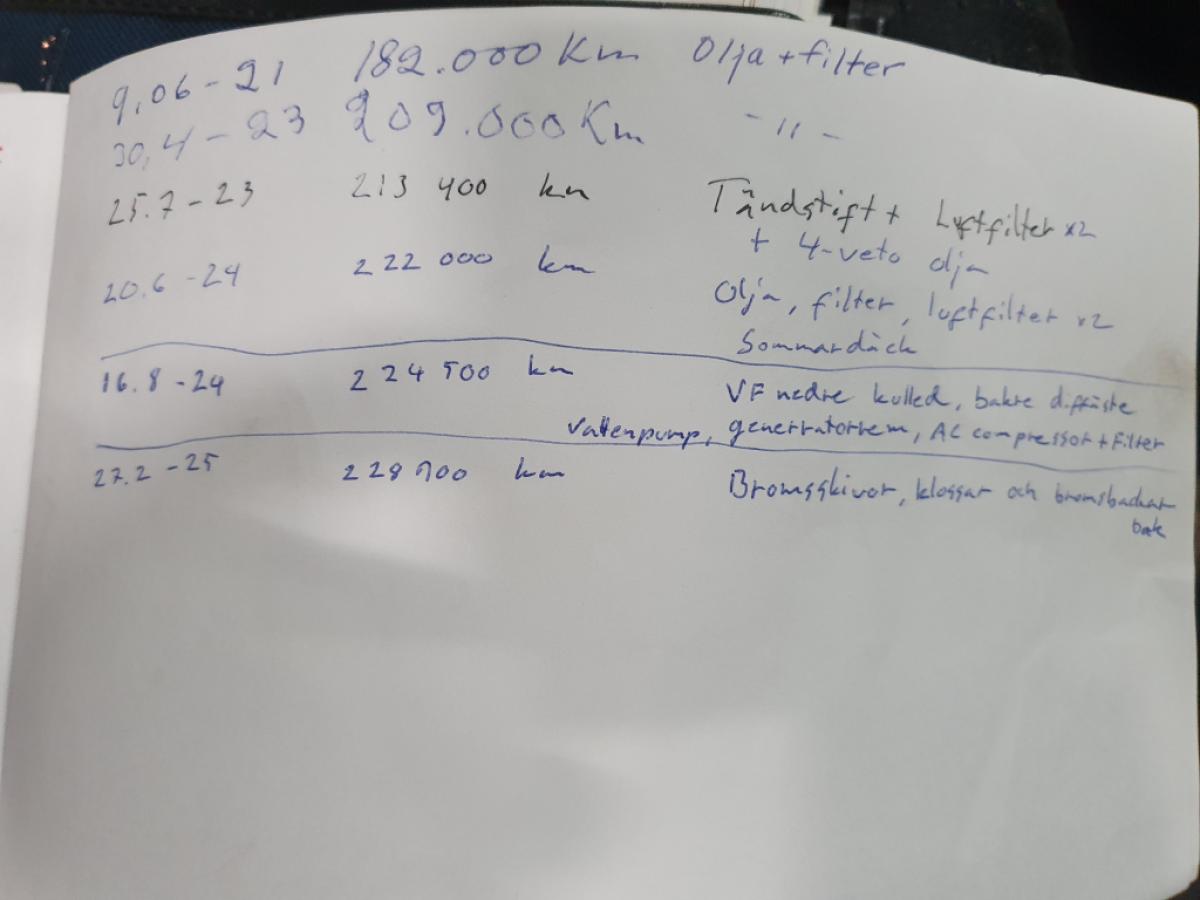 9,06-21 182.000 Km Olja + filter
30,4-23 209.000 Km -"-
25.7-23 213 400 km Tändstift + Luftfilter x2
+ 4-veto olja
20.6-24 222 000 km Olja, filter, luftfilter x2
Sommardäck
16.8-24 224 500 km VF nedre kulled, bakre diffäste
Vattenpump, generratorrem, AC compressor + Filter
27.2-25 228 900 km Bromsskivor, klossar och bromsbackar
bak